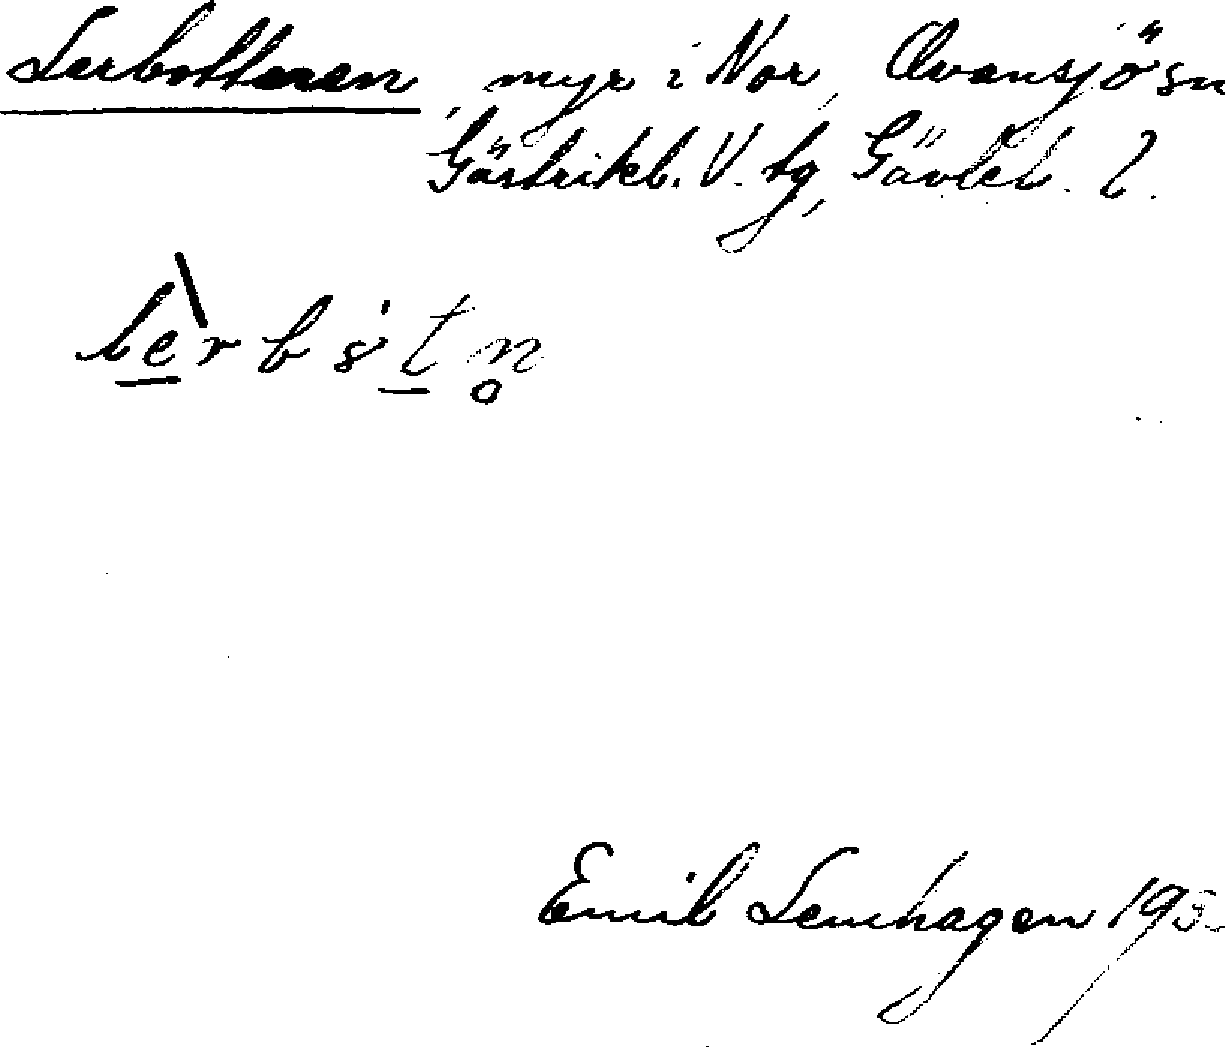 Lerbottenen, myr i Nor, Ovansjö sn
Gästrikl. V. tg, Gävleb. l.
Emil Lemhagen 193